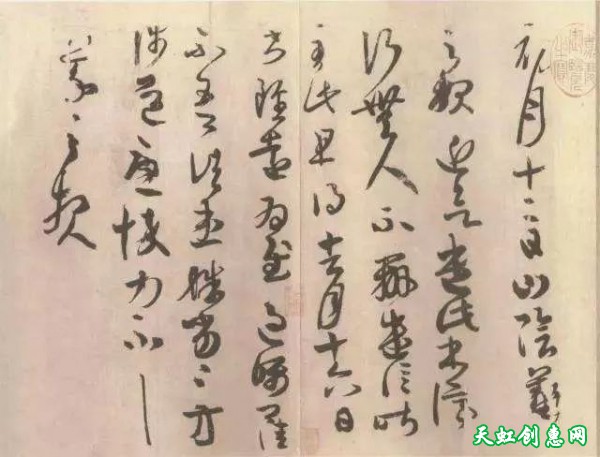 初月十二日山陰羲
之報近欲遣此書停
行無人不辦遣信昨
至此且得去月十六日
書雖遠為慰過囑卿佐
不吾諸患殊劣〻方
涉道憂悴力不具
羲之報
天虹创惠网